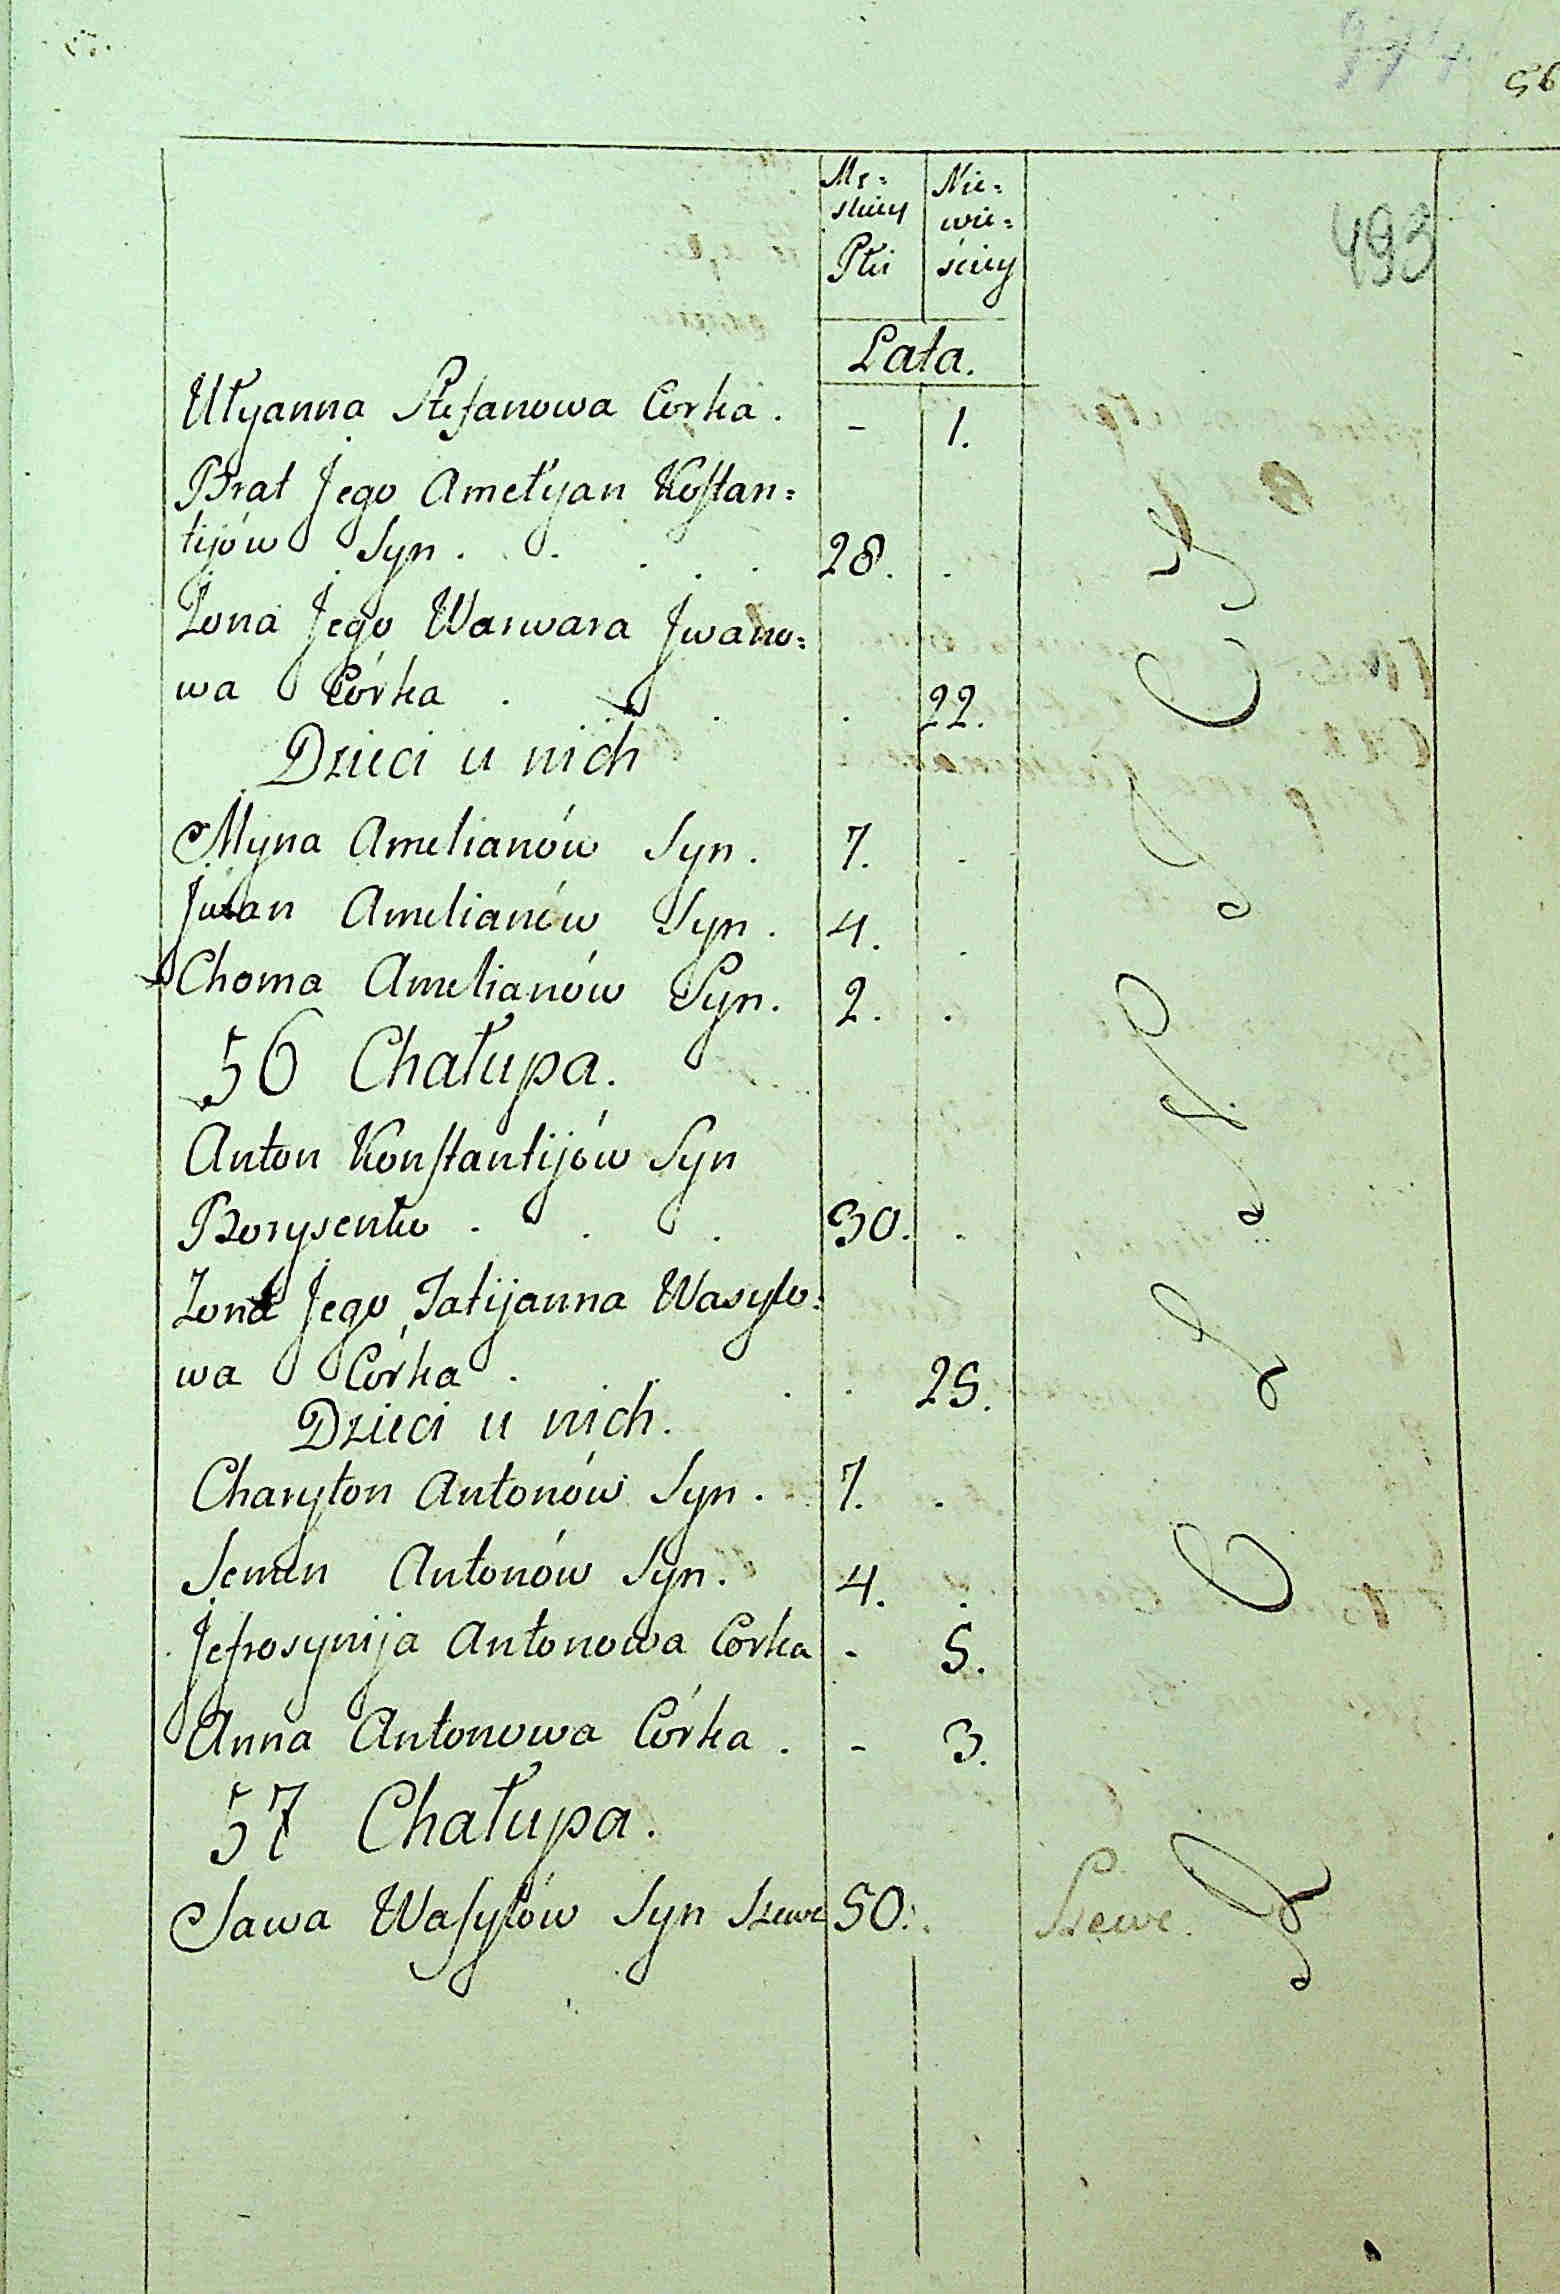 56
493
Mę= Nie=
skiey wie=
Płci ściey
Lata.
Ułyanna Stefanowa Corka . - 1.
Brat Jego Amełyan Kostan=
tijów Syn . . . . . 28. .
Żona Jego Warwara Jwano=
wa Córka . . . . 22.
Dzieci u nich
Myna Amelianów Syn . 7. .
Jwan Amelianów Syn . 4. .
Choma Amelianów Syn . 2. .
56 Chałupa.
Anton Konstantijów Syn
Borysenko . . . 30. .
Zona Jego Tatijanna Wasyło=
wa Córka . . . . 25.
Dzieci u nich.
Charyton Antonów Syn . 7. .
Semen Antonów Syn . 4. .
Jefrosynija Antonowa Corka - 5.
Anna Antonowa Córka . - 3.
57 Chałupa.
Sawa Wasylów Syn Szewc 50. . Szewc.